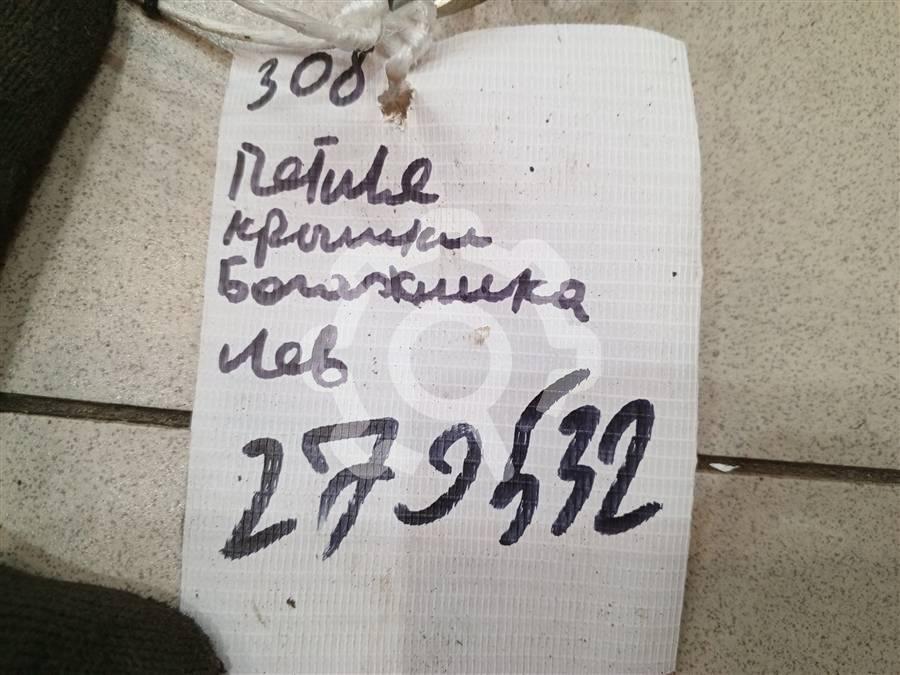 308
Петля
крышки
Багажника
лев
279532